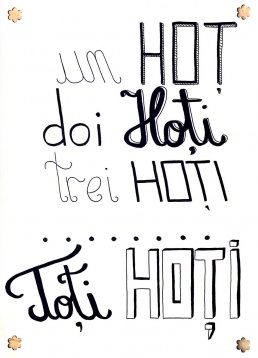 un HOȚ
doi Hoți
trei HOȚI
. . . . . . . . .
Toți HOȚI